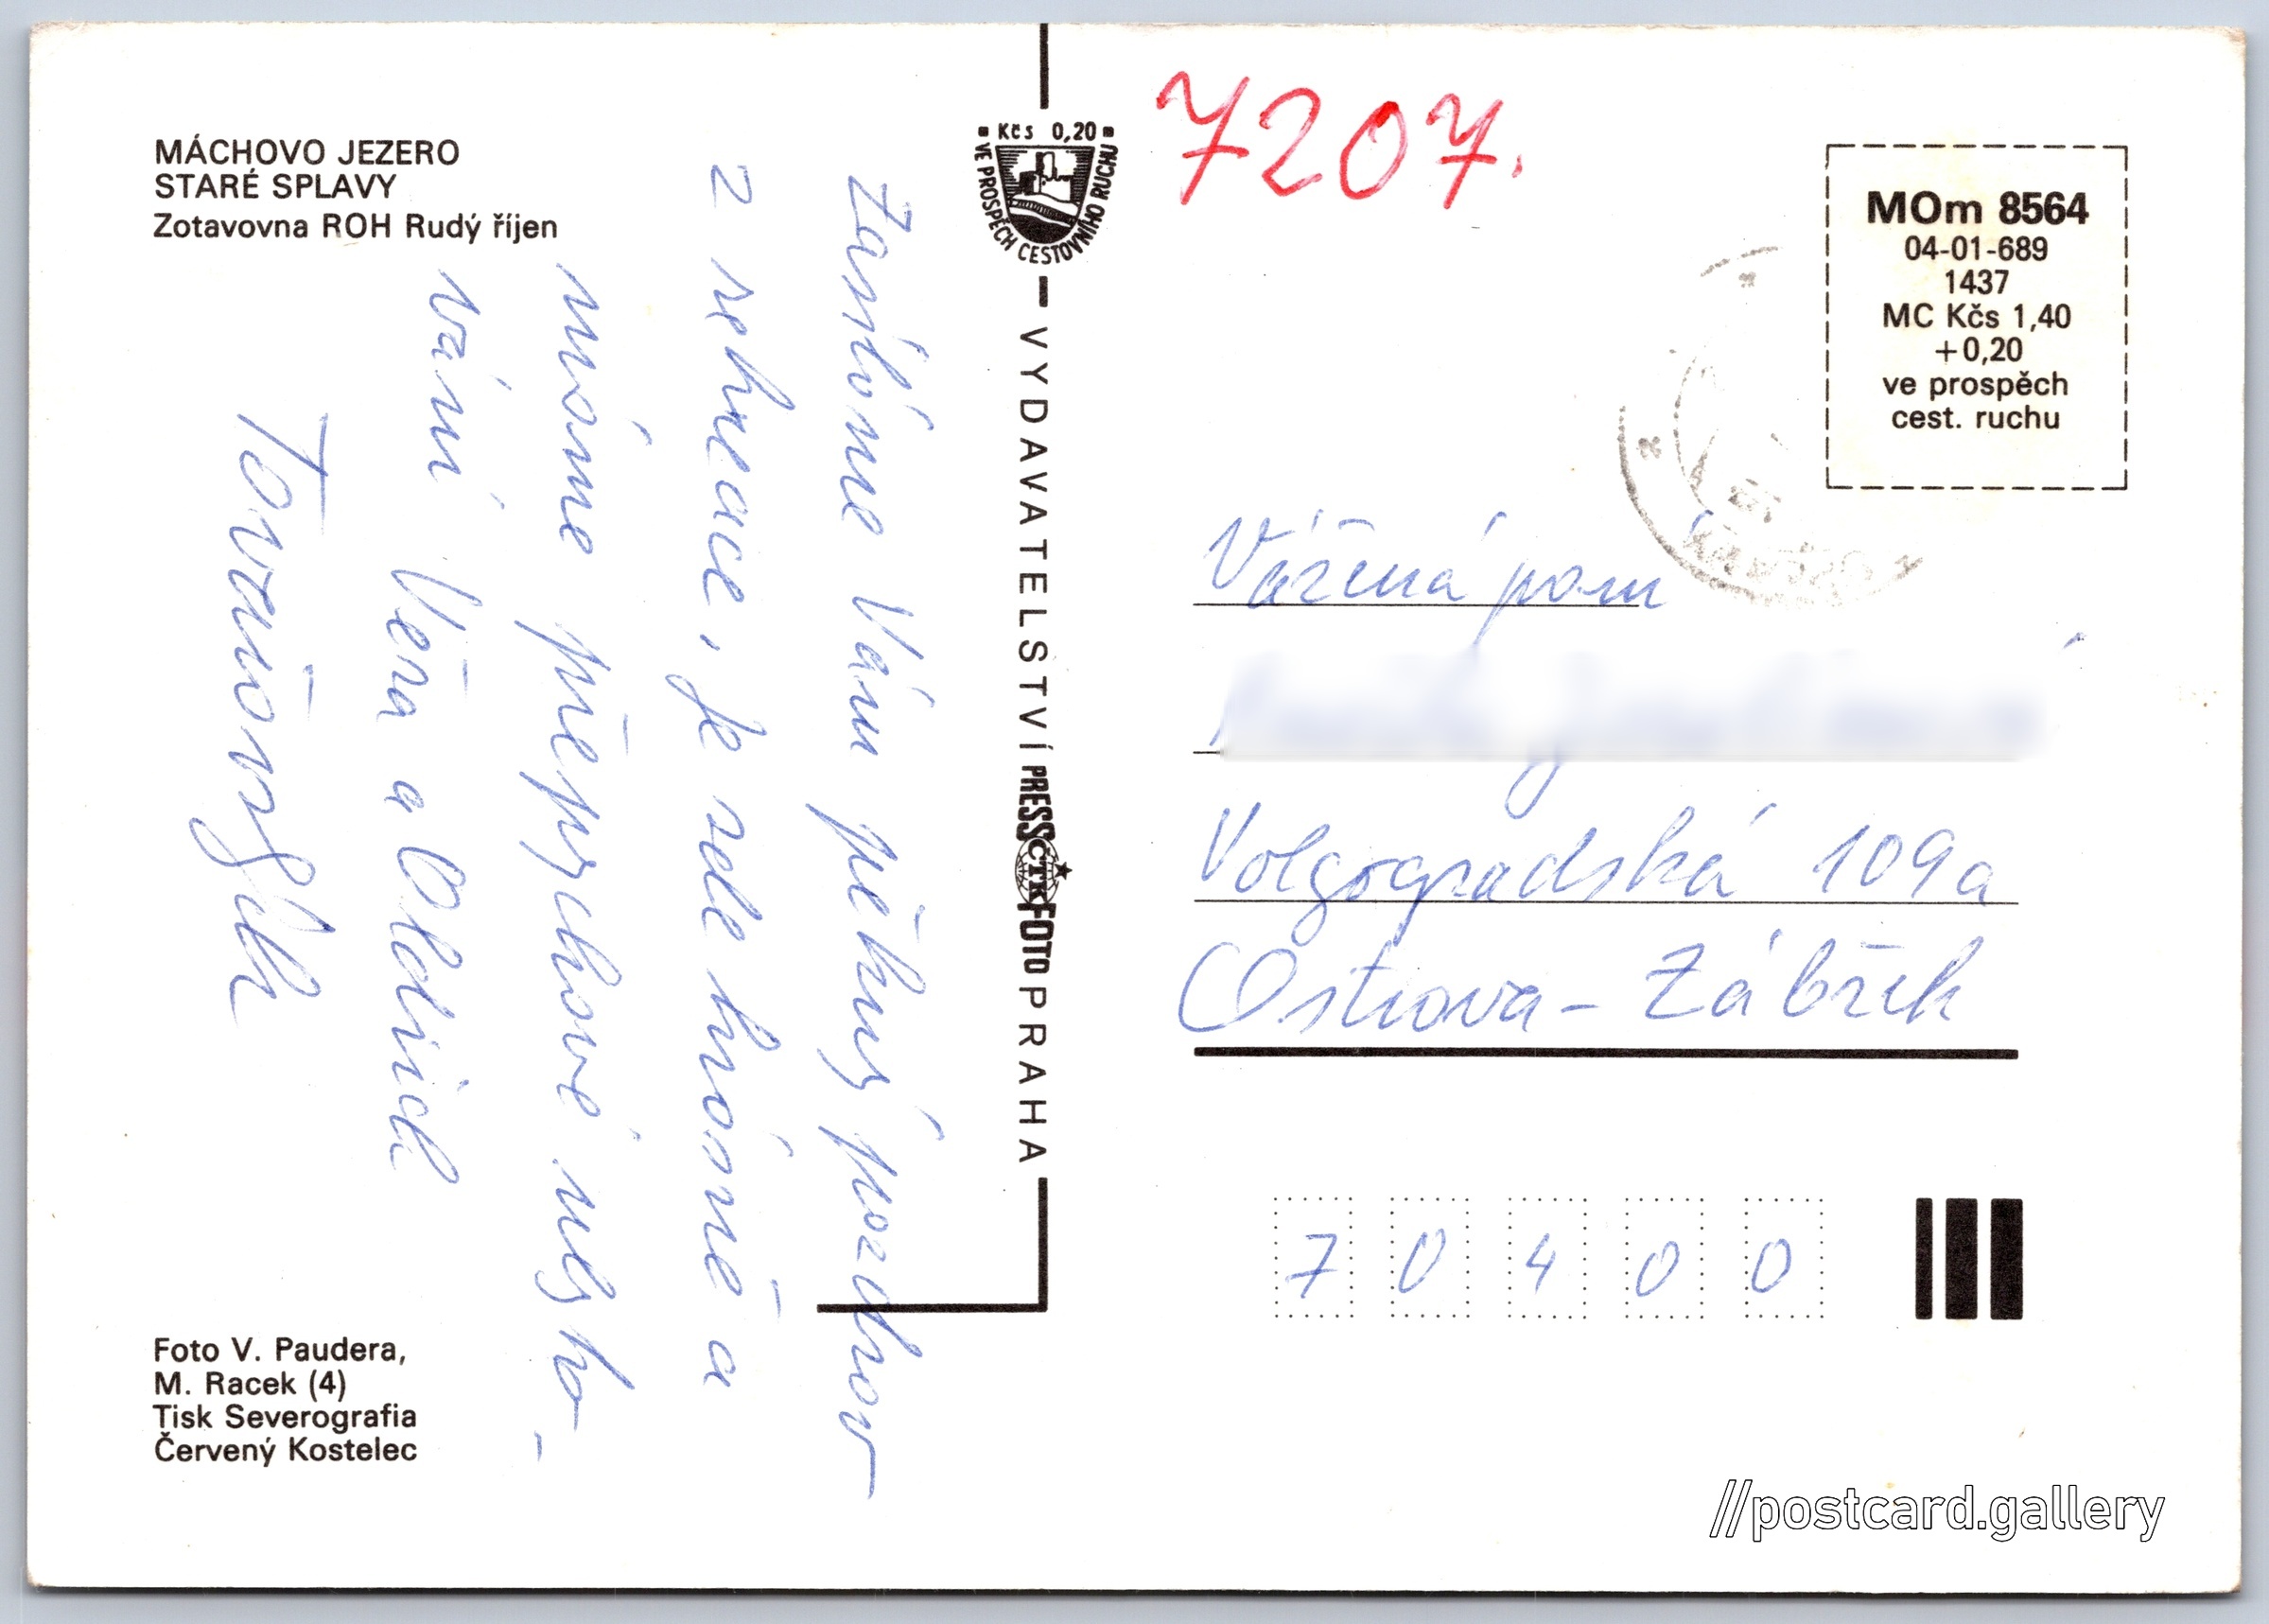 MÁCHOVO JEZERO
STARÉ SPLAVY
Zotavovna ROH Rudý říjen
Zasíláme Vám pěkný pozdrav
z rekreace, je zde krásně a
máme přepychové ubyto-
vání Věra a Oldřich
Foto V. Paudera,
M. Racek (4)
Tisk Severografia
Červený Kostelec
Kčs 0,20
VE PROSPĚCH CESTOVNÍHO RUCHU
VYDAVATELSTVÍ PRESSFOTO PRAHA
ČTK
7207.
MOm 8564
04-01-689
1437
MC Kčs 1,40
+0,20
ve prospěch
cest. ruchu
Vážená paní
Volgogradská 109a
Ostrava - Zábřeh
70400
//postcard.gallery